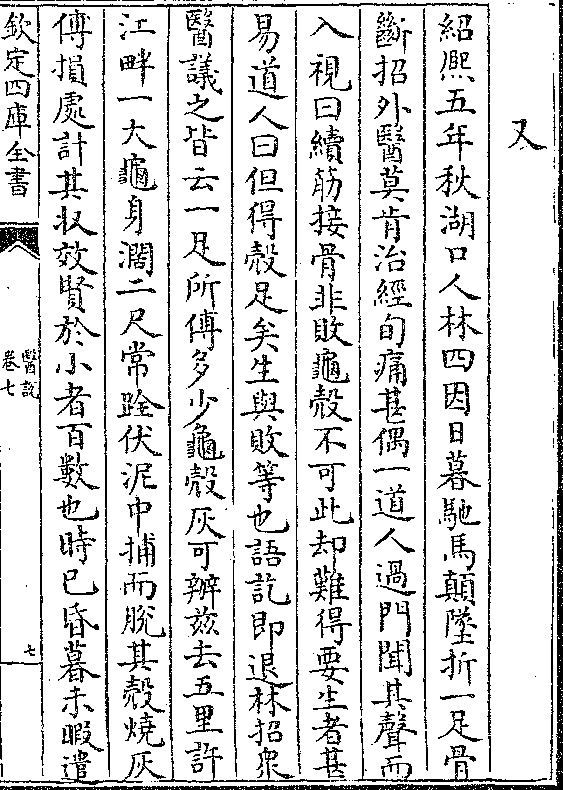 又
紹熈五年秋湖口人林四因日暮馳馬顛墜折一足骨
斷招外醫莫肯治經旬痛甚偶一道人過門聞其聲而
入視曰續筋接骨非敗龜殻不可此却難得要生者甚
易道人曰但得殻足矣生與敗等也語訖即退林招衆
醫議之皆云一足所傅多少龜殻灰可辦兹去五里許
江畔一大龜身濶二尺常跧伏泥中捕而脫其殻燒灰
傅損處計其收效賢於小者百數也時已昏暮未暇遣
欽定四庫全書
醫説
卷七
七